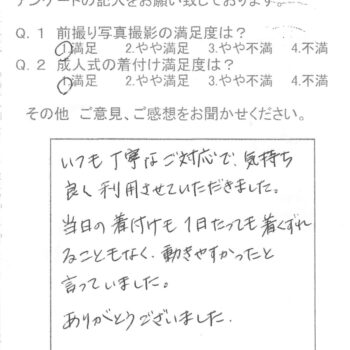 アンケートの記入をお願い致しております。
Q. 1 前撮り写真撮影の満足度は？
1.満足 2.やや満足 3.やや不満 4.不満
Q. 2 成人式の着付け満足度は？
1.満足 2.やや満足 3.やや不満 4.不満
その他 ご意見、ご感想をお聞かせください。
いつも丁寧なご対応で、気持ち
良く利用させていただきました。
当日の着付けも1日たっても着くずれ
ることもなく、動きやすかったと
言っていました。
ありがとうございました.